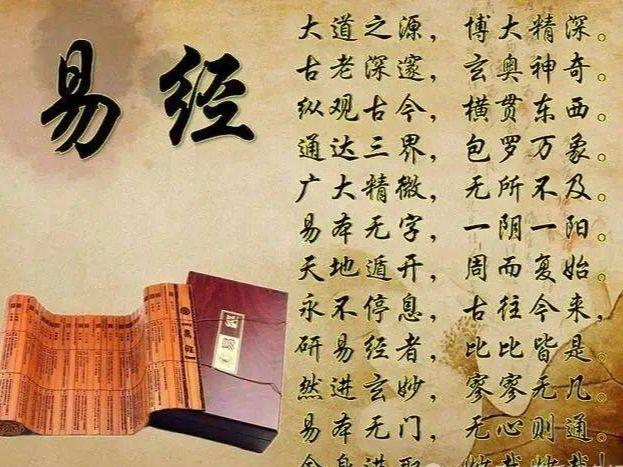 易经
大道之源，博大精深。
古老深邃，玄奥神奇。
纵观古今，横贯东西。
通达三界，包罗万象。
广大精微，无所不及。
易本无字，一阴一阳。
天地遁开，周而复始。
永不停息，古往今来，
研易经者，比比皆是。
然进玄妙，寥寥无几。
易本无门，无心则通。